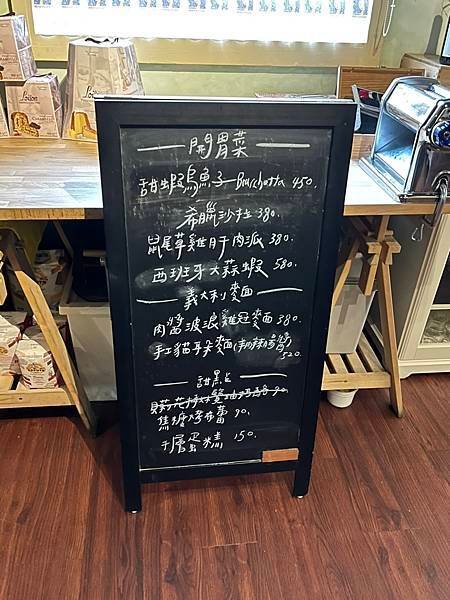 開胃菜
甜蝦烏魚子 Bruschetta 450.
希臘沙拉 380.
鼠尾草雞肝肉派 380.
西班牙大蒜蝦 580.
義大利麵
肉醬波浪雞冠麵 380.
手工貓耳朵麵(
520
甜點
90.
焦糖烤布蕾 90.
千層蛋糕 150.
Loison